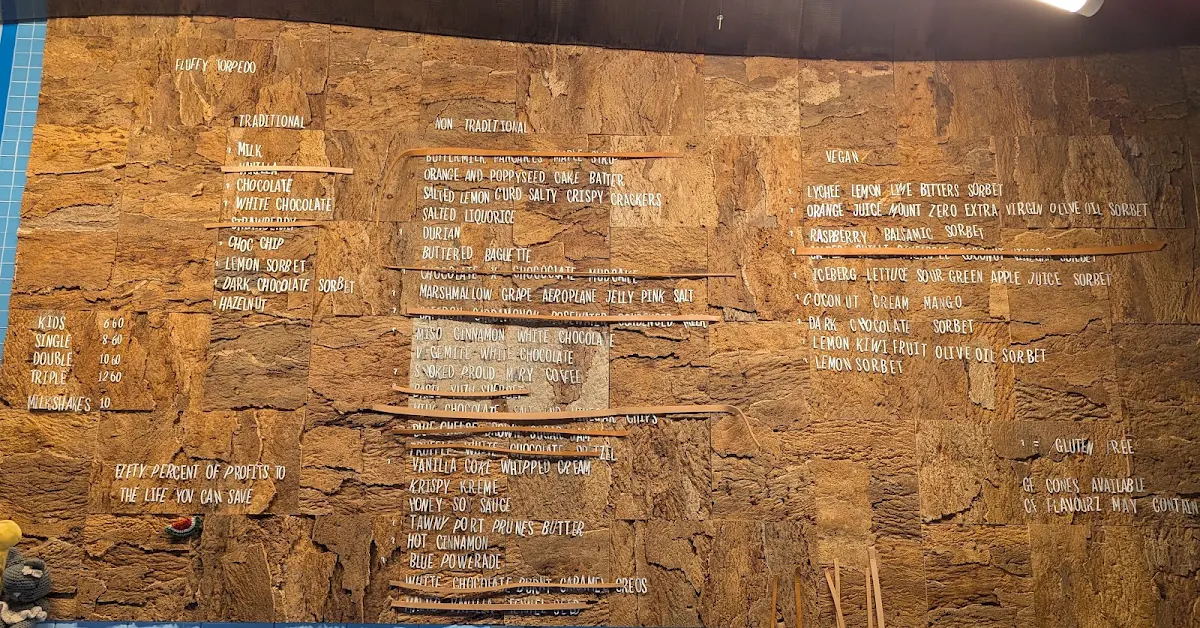 FLUFFY TORPEDO
TRADITIONAL
MILK
VANILLA
CHOCOLATE
WHITE CHOCOLATE
STRAWBERRY
CHOC CHIP
LEMON SORBET
DARK CHOCOLATE SORBET
HAZELNUT
KIDS 6.60
SINGLE 8.60
DOUBLE 10.60
TRIPLE 12.60
MILKSHAKES 10
FIFTY PERCENT OF PROFITS TO
THE LIFE YOU CAN SAVE
NON TRADITIONAL
BUTTERMILK PANCAKES MAPLE SYRUP
ORANGE AND POPPYSEED CAKE BATTER
SALTED LEMON CURD SALTY CRISPY CRACKERS
SALTED LIQUORICE
DURIAN
BUTTERED BAGUETTE
CHOCOLATE X CHOCOLATE MUDCAKE
MARSHMALLOW GRAPE AEROPLANE JELLY PINK SALT
ROSEWATER CONDENSED MILK
MISO CINNAMON WHITE CHOCOLATE
V GEMITE WHITE CHOCOLATE
PROUD M RY COFFEE
MILK CHOCOLATE CHIPS
BLUE CHEESE BROWN SUGAR JAM
TRUFFLE WHITE CHOCOLATE
VANILLA COKE WHIPPED CREAM
KRISPY KREME
HONEY SOY SAUCE
TAWNY PORT PRUNES BUTTER
HOT CINNAMON
BLUE POWERADE
WHITE CHOCOLATE BURNT CARAMEL OREOS
VEGAN
LYCHEE LEMON LIME BITTERS SORBET
ORANGE JUICE MOUNT ZERO EXTRA VIRGIN OLIVE OIL SORBET
RASPBERRY BALSAMIC SORBET
COCONUT VINEGAR SORBET
ICEBERG LETTUCE SOUR GREEN APPLE JUICE SORBET
COCONUT CREAM MANGO
DARK CHOCOLATE SORBET
LEMON KIWI FRUIT OLIVE OIL SORBET
LEMON SORBET
= GLUTEN FREE
GF CONES AVAILABLE
GF FLAVOURZ MAY CONTAIN